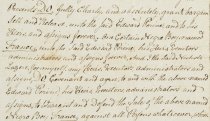 Received I do fully Clearly and absolutely grant bargain
Sell and Release, unto the said Edward Perrie and his
Heirs and assigns forever, one Certain Negro Boy named
France, unto the said Edward Perrie, his Heirs Executors
administrators and assigns forever. And I the said
for myself my Heirs Executors administrators and
assigns do Covenant and agree to and with the above named
Edward Perrie, his Heirs Executors administrators and
assigns, to Warrant and Defend the Sale of the above named
Negro Boy France, against all Persons whatsoever